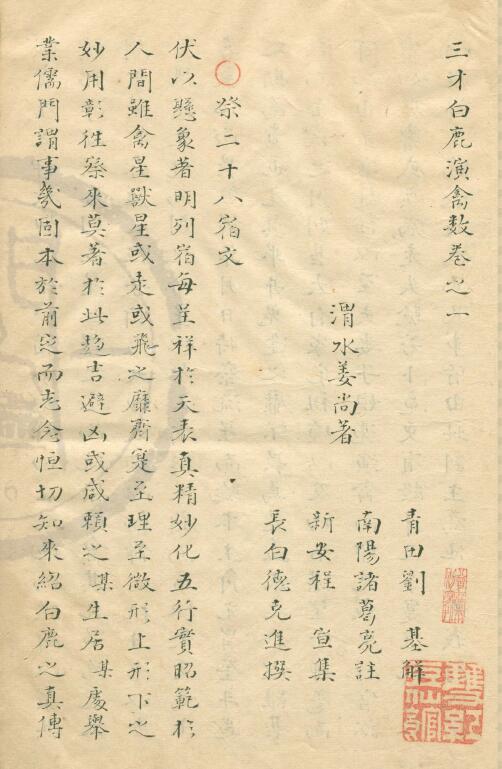 三才白鹿演禽数卷之一
渭水姜尚著
青田劉基解
南陽諸葛亮註
新安程宣集
長白德克進撰
祭二十八宿文
伏以懸象著明列宿每呈祥於天表真精妙化五行實昭範於
人間雖禽星獸星或走或飛之靡齊寔至理至微形上形下之
妙用彰徃察来莫著於此趋吉避凶或咸賴之某生居某處舉
業儒門謂事幾固本於前定而志念恒切知来紹白鹿之真傳